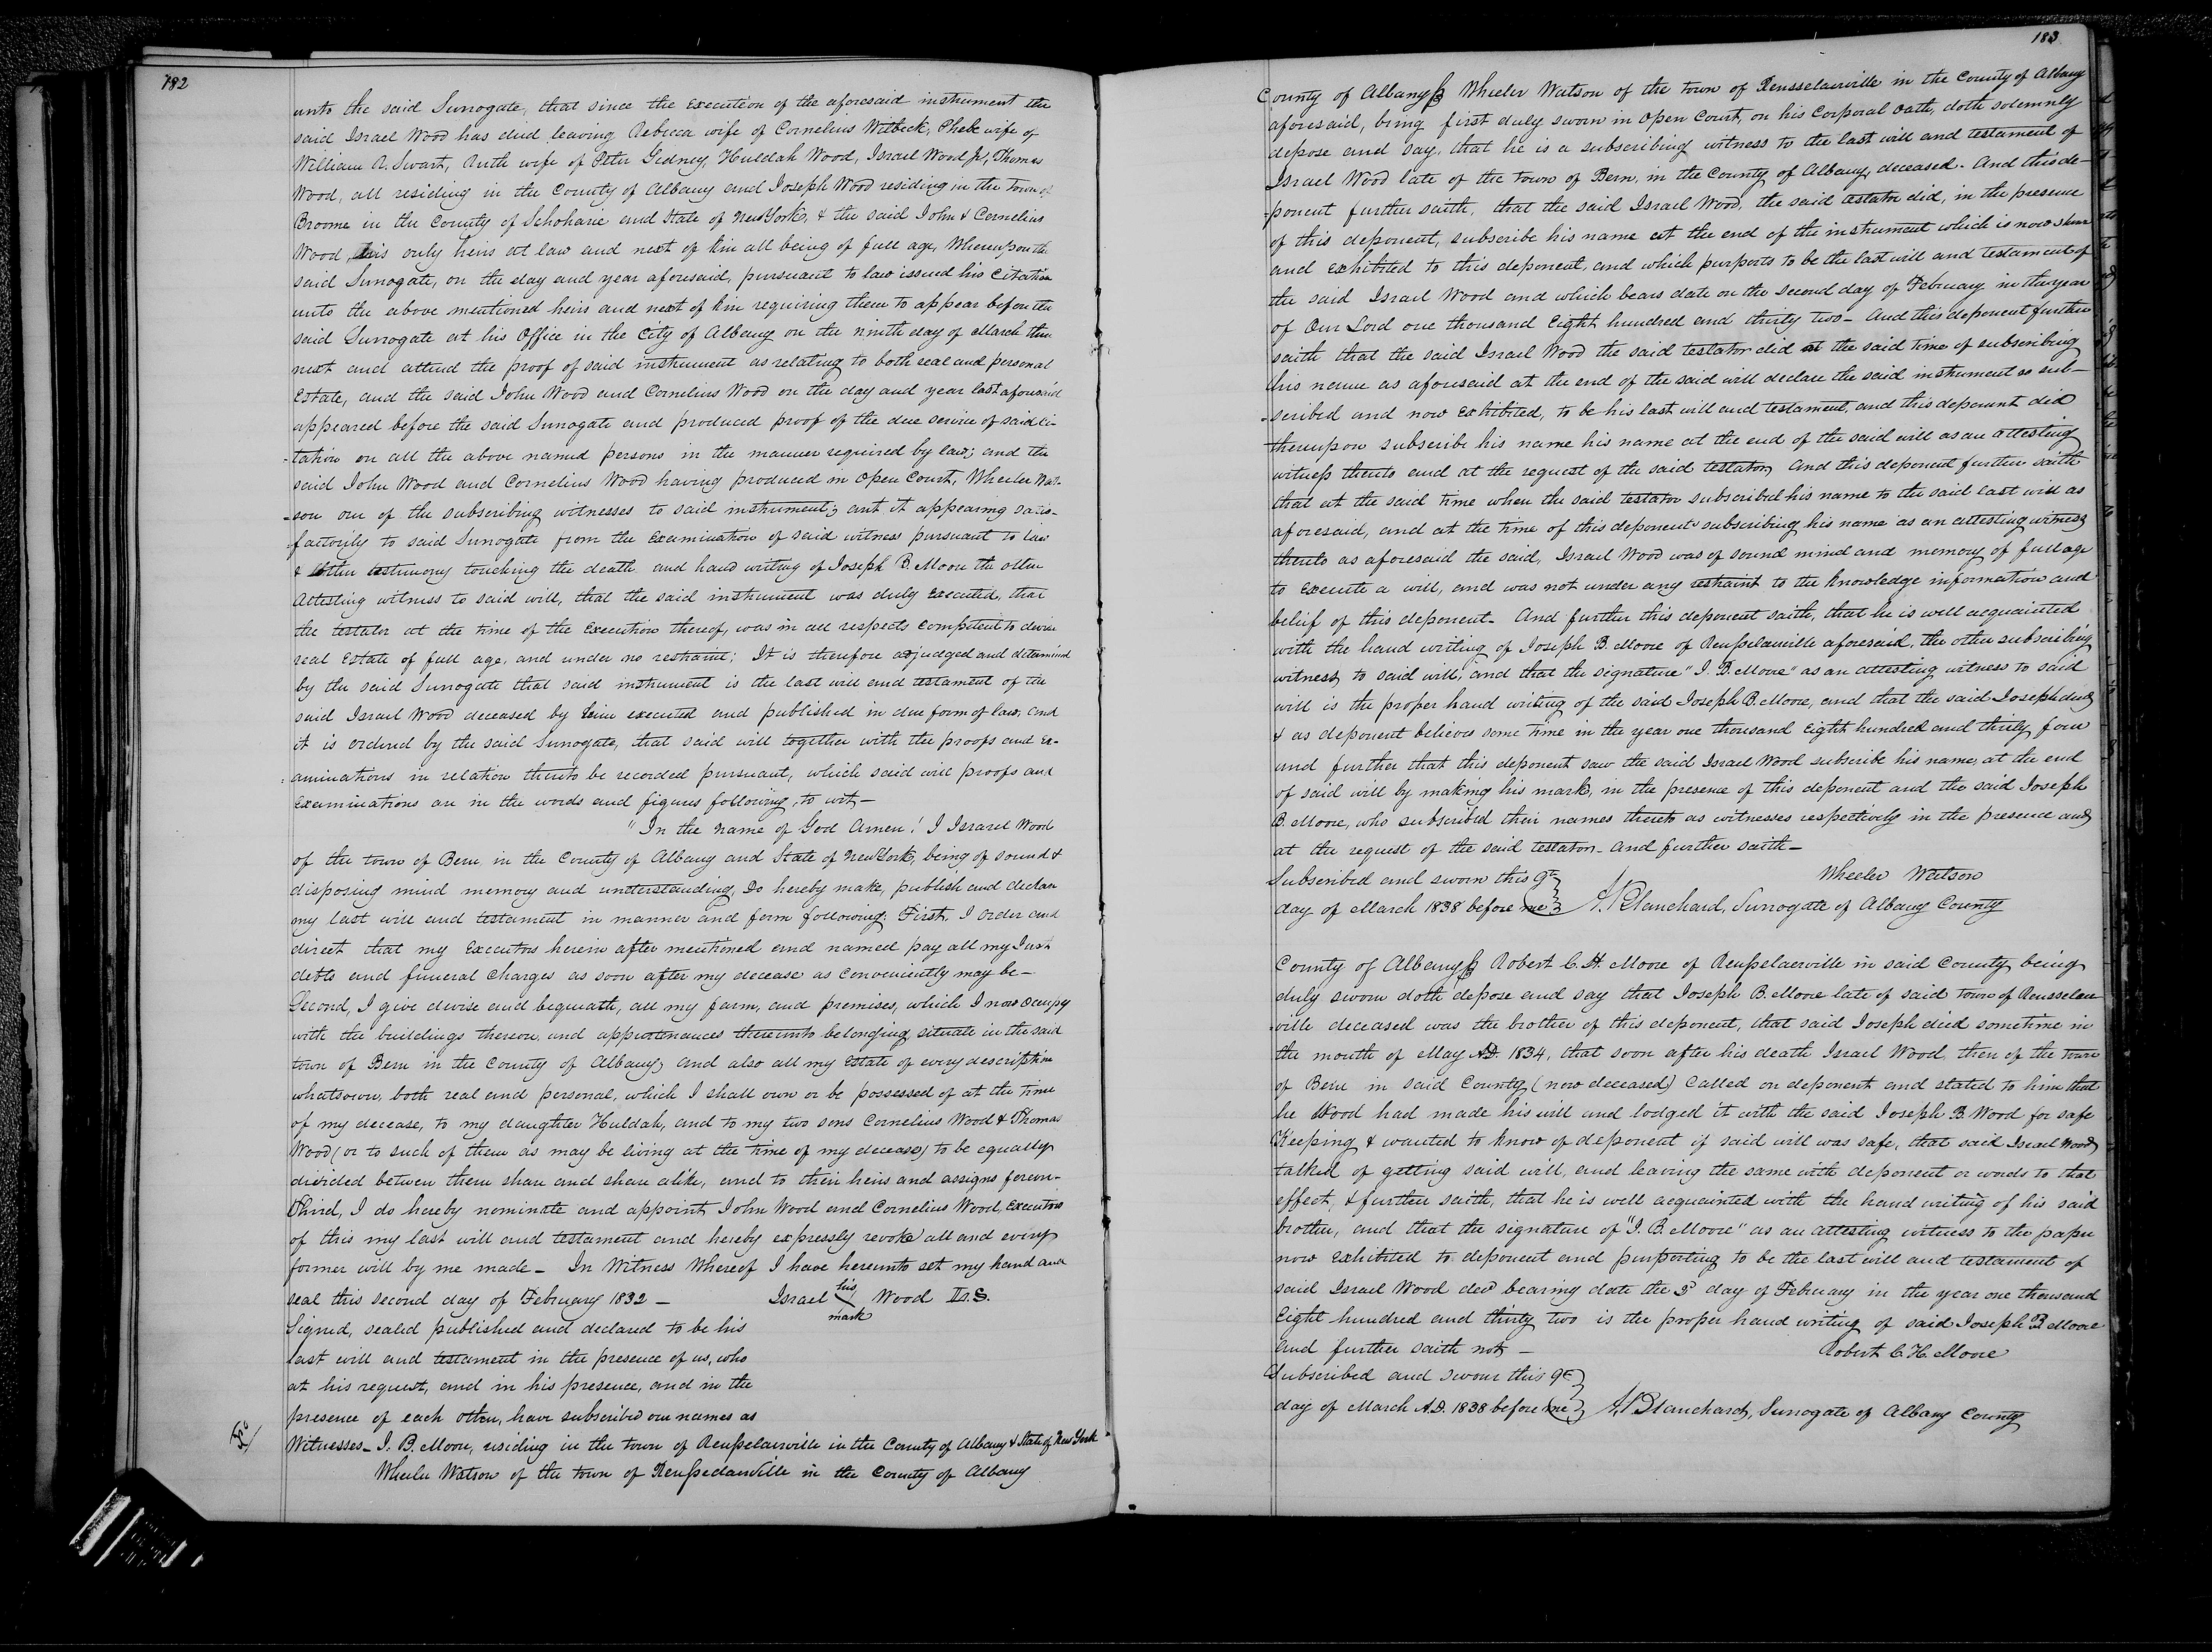 182
unto the said Surrogate, that since the Execution of the aforesaid instrument the
said Israel Wood has died leaving Rebecca wife of Cornelius Witbeck, Phebe wife of
William R. Swart, Ruth wife of Peter Gedney, Huldah Wood, Israel Wood Jr, Thomas
Wood, all residing in the County of Albany and Joseph Wood residing in the Town of
Broome in the County of Schoharie and State of New York, & the said John & Cornelius
Wood, his only heirs at law and next of kin all being of full age, Whereupon the
said Surrogate, on the day and year aforesaid, pursuant to law issued his Citation
unto the above mentioned heirs and next of kin requiring them to appear before the
said Surrogate at his Office in the City of Albany on the ninth day of March then
next and attend the proof of said instrument as relating to both real and personal
Estate, and the said John Wood and Cornelius Wood on the day and year last aforesaid
appeared before the said Surrogate and produced proof of the due service of said Ci-
-tation on all the above named persons in the manner required by law; and the
said John Wood and Cornelius Wood having produced in Open Court, Wheeler Wat-
-son one of the subscribing witnesses to said instrument; ant it appearing satis-
-factorily to said Surrogate from the Examination of said witness pursuant to law
& other testimony touching the death and hand writing of Joseph B. Moore the other
Attesting witness to said will, that the said instrument was duly Executed, that
the testator at the time of the Execution thereof, was in all respects Competent to devise
real Estate of full age, and under no restraint; It is therefore adjudged and determined
by the said Surrogate that said instrument is the last will and testament of the
said Israel Wood deceased by him executed and published in due form of law, and
it is ordered by the said Surrogate, that said will together with the proofs and Ex-
aminations in relation thereto be recorded pursuant, which said will proofs and
Examinations are in the words and figures following, to wit –
"In the name of God Amen! I Israel Wood
of the town of Bern in the County of Albany and State of New York, being of sound &
disposing mind memory and understanding, Do hereby make, publish and declare
my last will and testament in manner and form following: First, I order and
direct that my Executors herein after mentioned and named pay all my Just
debts and funeral Charges as soon after my decease as Conveniently may be –
Second, I give devise and bequeath, all my farm, and premises, which I now Occupy
with the buildings thereon and appurtenances thereunto belonging situate in the said
town of Bern in the County of Albany, and also all my Estate of every description
whatsoever, both real and personal, which I shall own or be possessed of at the time
of my decease, to my daughter Huldah, and to my two sons Cornelius Wood & Thomas
Wood (or to such of them as may be living at the time of my decease) to be equally
divided between them share and share alike, and to their heirs and assigns forever.
Third, I do hereby nominate and appoint John Wood and Cornelius Wood, Executors
of this my last will and testament and hereby expressly revoke all and every
former will by me made – In Witness Whereof I have hereunto set my hand and
seal this second day of February 1832 – Israel his mark Wood L.S.
Signed, sealed published and declared to be his
last will and testament in the presence of us, who
at his request, and in his presence, and in the
presence of each other, have subscribed our names as
Witnesses – J. B. Moore, residing in the town of Rensselaerville in the County of Albany & State of New York
Wheeler Watson of the town of Rensselaerville in the County of Albany
183
County of Albany ss Wheeler Watson of the town of Rensselaerville in the County of Albany
aforesaid, being first duly sworn in Open Court, on his Corporal Oath, doth solemnly
depose and say, that he is a subscribing witness to the last will and testament of
Israel Wood late of the town of Bern, in the County of Albany, deceased. And this de-
-ponent further saith, that the said Israel Wood, the said testator did, in the presence
of this deponent, subscribe his name at the end of the instrument which is now shewn
and exhibited to this deponent, and which purports to be the last will and testament of
the said Israel Wood and which bears date on the second day of February in the year
of Our Lord one thousand Eight hundred and thirty two – And this deponent further
saith that the said Israel Wood the said testator did at the said time of subscribing
his name as aforesaid at the end of the said will declare the said instrument so sub-
-scribed and now Exhibited, to be his last will and testament, and this deponent did
thereupon subscribe his name his name at the end of the said will as an attesting
witness thereto and at the request of the said testator, And this deponent further saith
that at the said time when the said testator subscribed his name to the said last will as
aforesaid, and at the time of this deponents subscribing his name as an attesting witness
thereto as aforesaid the said, Israel Wood was of sound mind and memory of full age
to Execute a will, and was not under any restraint to the knowledge information and
belief of this deponent – And further this deponent saith, that he is well acquainted
with the hand writing of Joseph B. Moore of Rensselaerville aforesaid, the other subscribing
witness to said will, and that the signature "J. B. Moore" as an attesting witness to said
will is the proper hand writing of the said Joseph B. Moore, and that the said Joseph died
& as deponent believes some time in the year one thousand Eight hundred and thirty four
and further that this deponent saw the said Israel Wood subscribe his name, at the end
of said will by making his mark, in the presence of this deponent and the said Joseph
B. Moore, who subscribed their names thereto as witnesses respectively in the presence and
at the request of the said testator – And further saith –
Subscribed and sworn this 9th Wheeler Watson
day of March 1838 before me A. Blanchard, Surrogate of Albany County
County of Albany ss Robert C. H. Moore of Rensselaerville in said County being
duly sworn doth depose and say that Joseph B. Moore late of said town of Rensselaer
-ville deceased was the brother of this deponent, that said Joseph died sometime in
the month of May A.D. 1834, that soon after his death Israel Wood, then of the town
of Bern in said County (now deceased) Called on deponent and stated to him that
he Wood had made his will and lodged it with the said Joseph B. Wood for safe
Keeping & wanted to know of deponent if said will was safe, that said Israel Wood
talked of getting said will, and leaving the same with deponent or words to that
effect, & further saith, that he is well acquainted with the hand writing of his said
brother, and that the signature of "J. B. Moore" as an attesting witness to the paper
now Exhibited to deponent and purporting to be the last will and testament of
said Israel Wood decd bearing date the 2d day of February in the year one thousand
Eight hundred and thirty two is the proper hand writing of said Joseph B Moore
And further saith not – Robert C. H. Moore
Subscribed and sworn this 9th
day of March A.D. 1838 before me A. Blanchard, Surrogate of Albany County